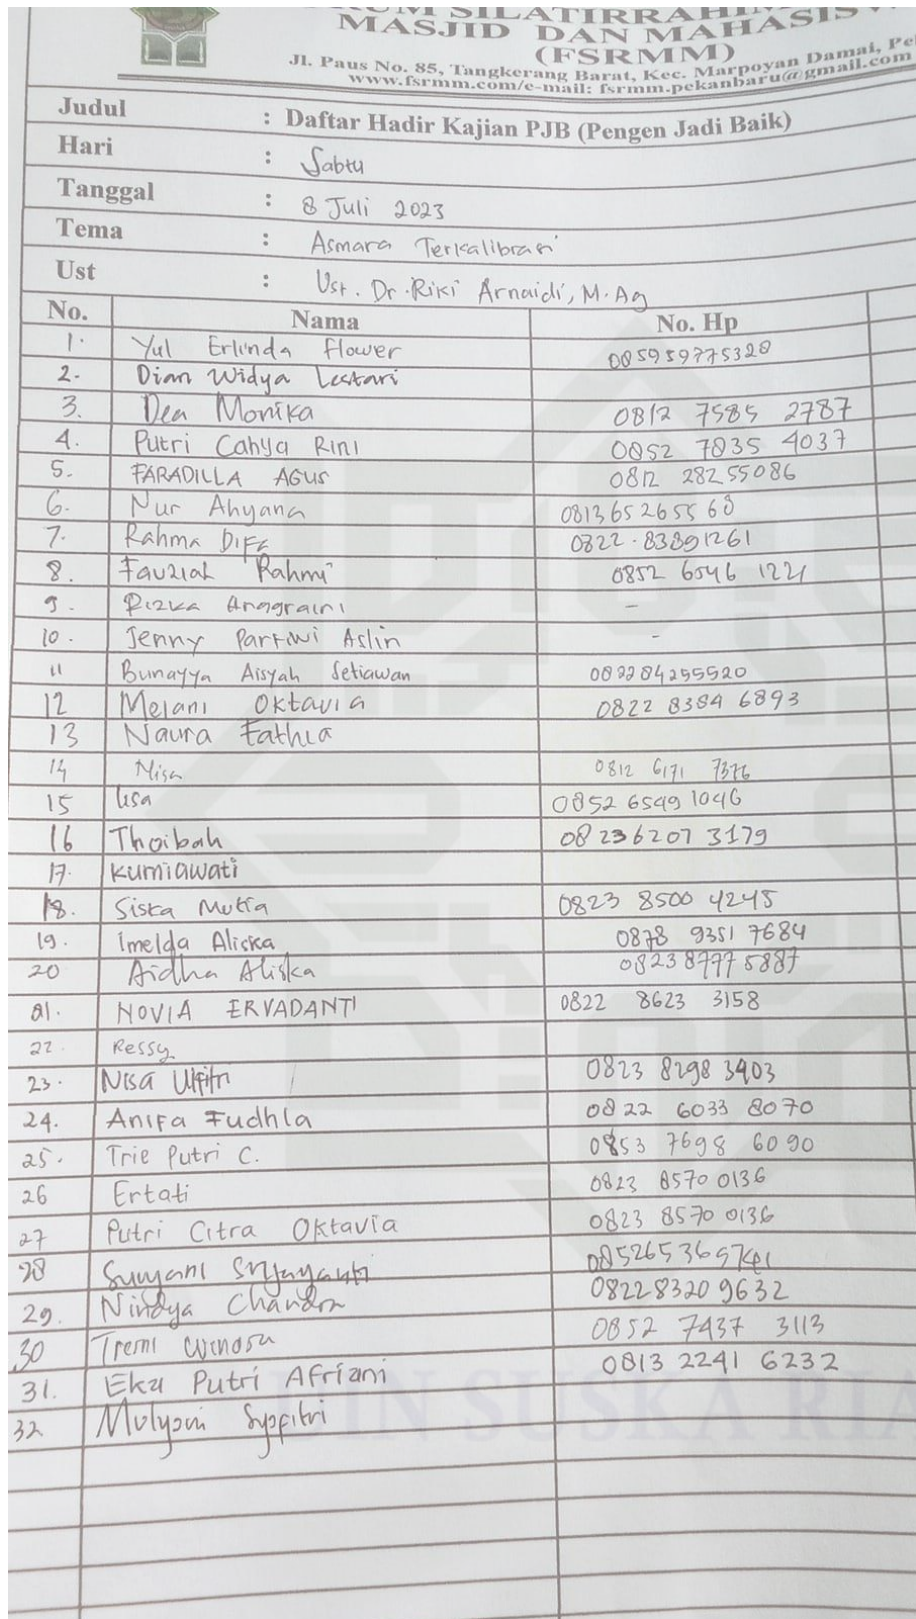 SILATIRRAHIM
MASJID DAN MAHASISW
(FSRMM)
Jl. Paus No. 85, Tangkerang Barat, Kec. Marpoyan Damai, Pe
www.fsrmm.com/e-mail: fsrmm.pekanbaru@gmail.com
Judul : Daftar Hadir Kajian PJB (Pengen Jadi Baik)
Hari : Sabtu
Tanggal : 8 Juli 2023
Tema : Asmara Terkalibrasi
Ust : Ust. Dr. Riki Arnaidi, M.Ag
No. Nama No. Hp
1. Yul Erlinda Flower 085959775328
2. Dian Widya Lestari
3. Dea Monika 0812 7585 2787
4. Putri Cahya Rini 0852 7835 4037
5. FARADILLA AGUS 0812 28255086
6. Nur Ahyana 081365265568
7. Rahma Diffa 0822-83891261
8. Fauziah Rahmi 0852 6546 1221
9. Rizka Anggraini -
10. Jenny Partiwi Aslin -
11 Bunayya Aisyah Setiawan 082284255520
12 Melani Oktavia 0822 8384 6893
13 Naura Fathia
14 Nisa 0812 6171 7376
15 Lisa 0852 6549 1046
16 Thoibah 08236207 3179
17. Kurniawati
18. Siska Mutia 0823 8500 4245
19. Imelda Aliska 0878 9351 7684
20 Aidha Aliska 082387775887
21. NOVIA ERVADANTI 0822 8623 3158
22. Ressy
23. Nisa Ulfitri 0823 8298 3403
24. Anifa Fudhla 0822 6033 8070
25. Trie Putri C. 0853 7698 6090
26 Ertati 0823 8570 0136
27 Putri Citra Oktavia 0823 8570 0136
28 Suryani
29. Nindya Chandra 082283209632
30 0852 7437 3113
31. Eka Putri Afriani 0813 2241 6232
32 Mulyani Syafitri
UIN SUSKA RIA